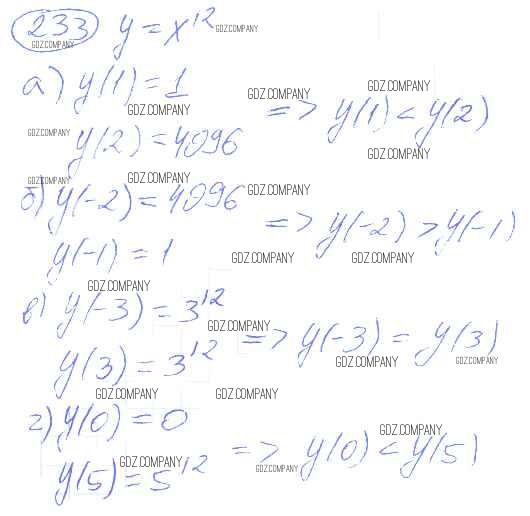 233 y = x¹²
GDZ.COMPANY GDZ.COMPANY
а) y(1) = 1
GDZ.COMPANY GDZ.COMPANY GDZ.COMPANY
=> y(1) < y(2)
GDZ.COMPANY y(2) = 4096 GDZ.COMPANY
GDZ.COMPANY GDZ.COMPANY
б) y(-2) = 4096 GDZ.COMPANY
=> y(-2) > y(-1)
y(-1) = 1 GDZ.COMPANY GDZ.COMPANY
GDZ.COMPANY
в) y(-3) = 3¹²
GDZ.COMPANY
=> y(-3) = y(3)
y(3) = 3¹² GDZ.COMPANY GDZ.COMPANY
GDZ.COMPANY GDZ.COMPANY
г) y(0) = 0
GDZ.COMPANY
=> y(0) < y(5)
y(5) = 5¹² GDZ.COMPANY GDZ.COMPANY